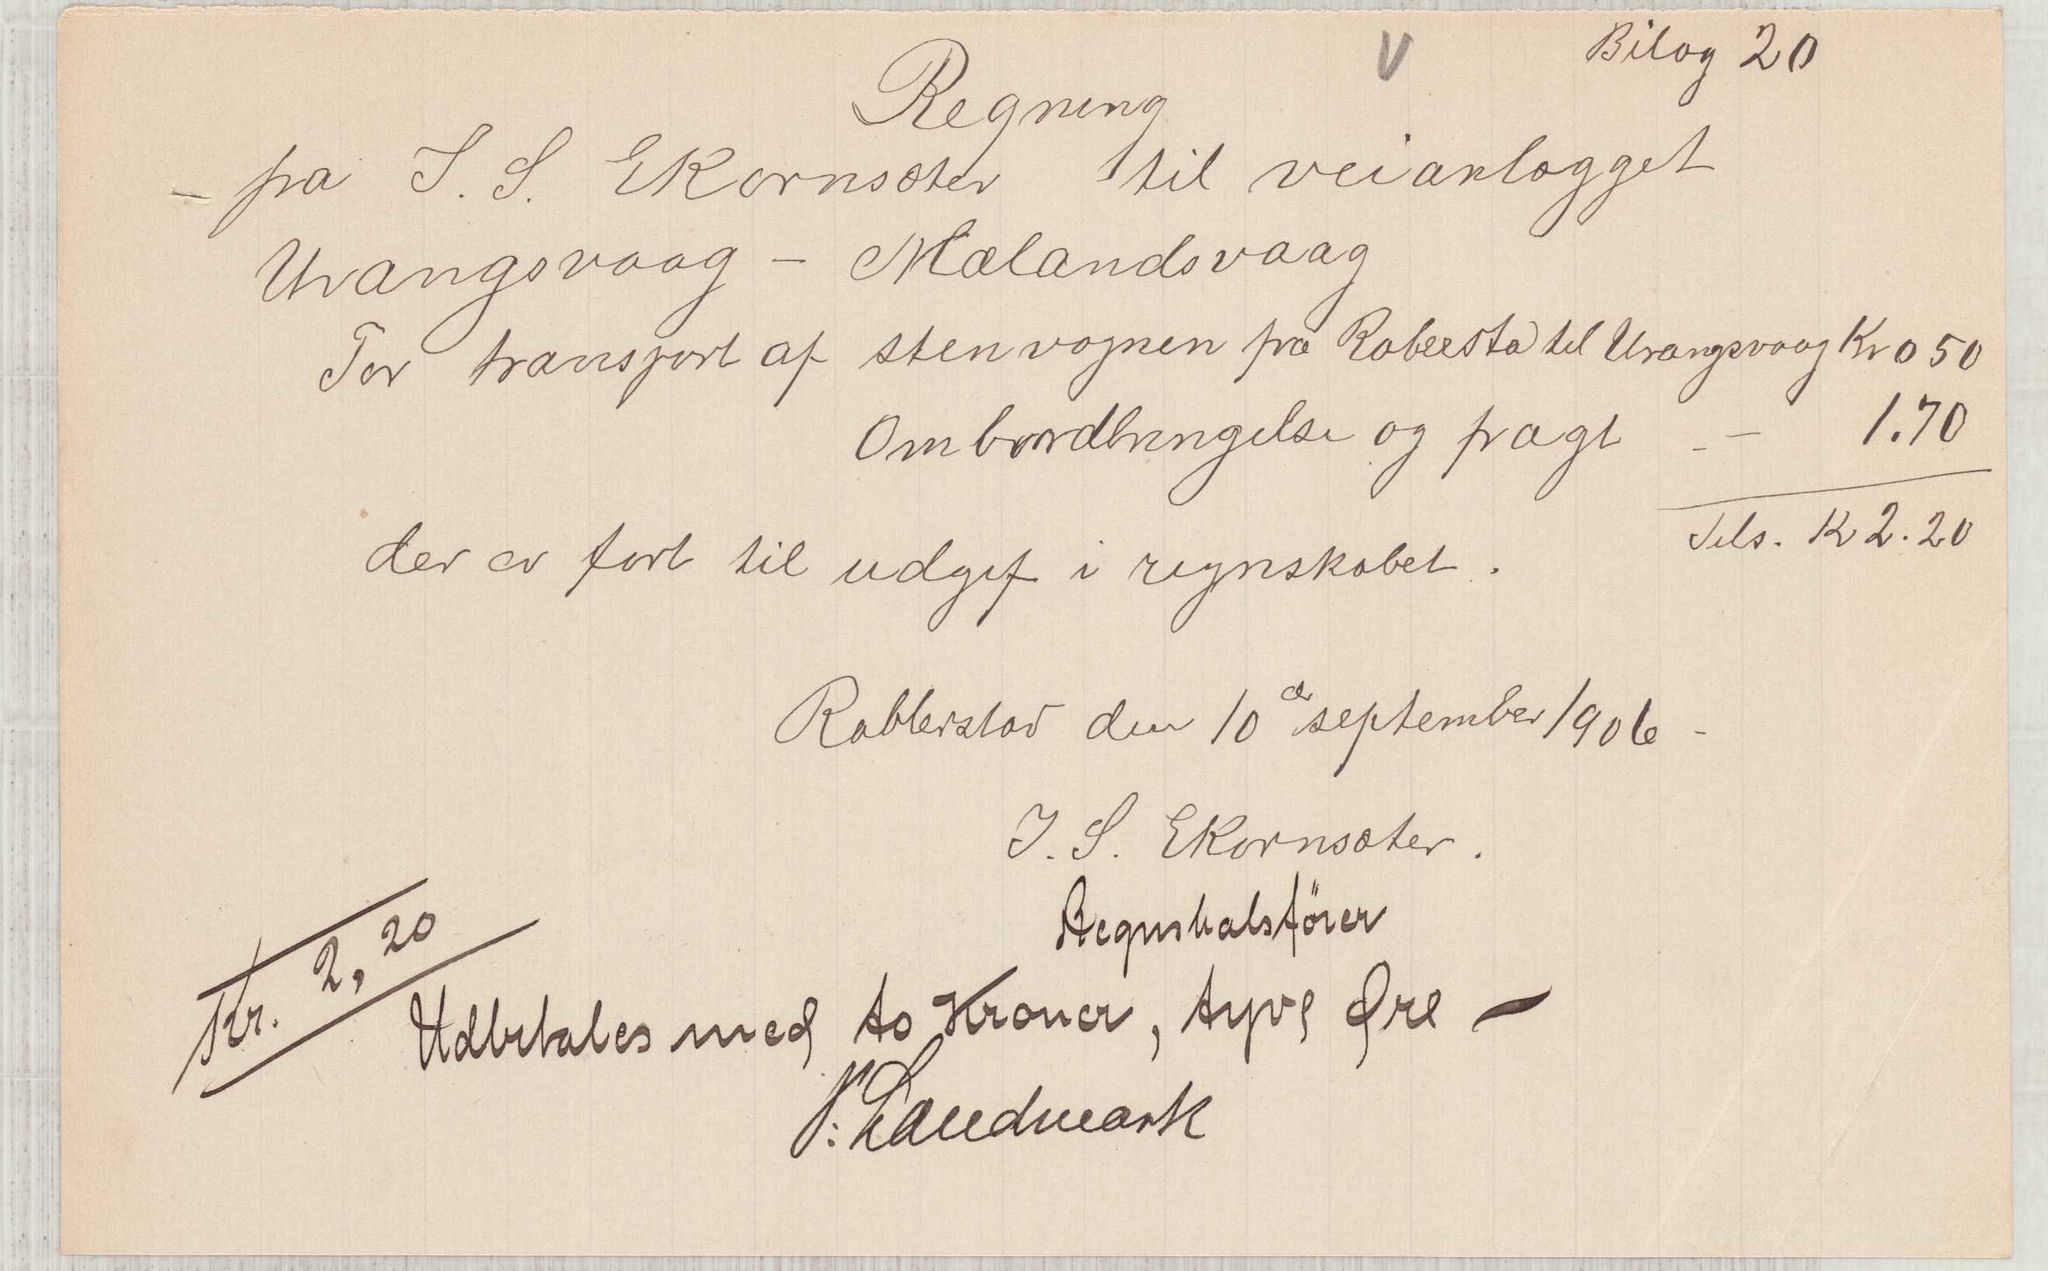 V
Bilag 20
Regning
- fra J. S. Ekornsæter til veianlægget
Urangsvaag - Mælandsvaag
For transport af stenvognen fra til Urangsvaag Kr 0 50
Ombordbringelse og fragt - - 1.70
Tils. Kr 2.20
der er ført til udgif i regnskabet.
den 10de september 1906 -
J. S. Ekornsæter.
Regnskabsfører
Kr. 2,20
Udbetales med to Kroner, tyve Øre -
N: Landmark